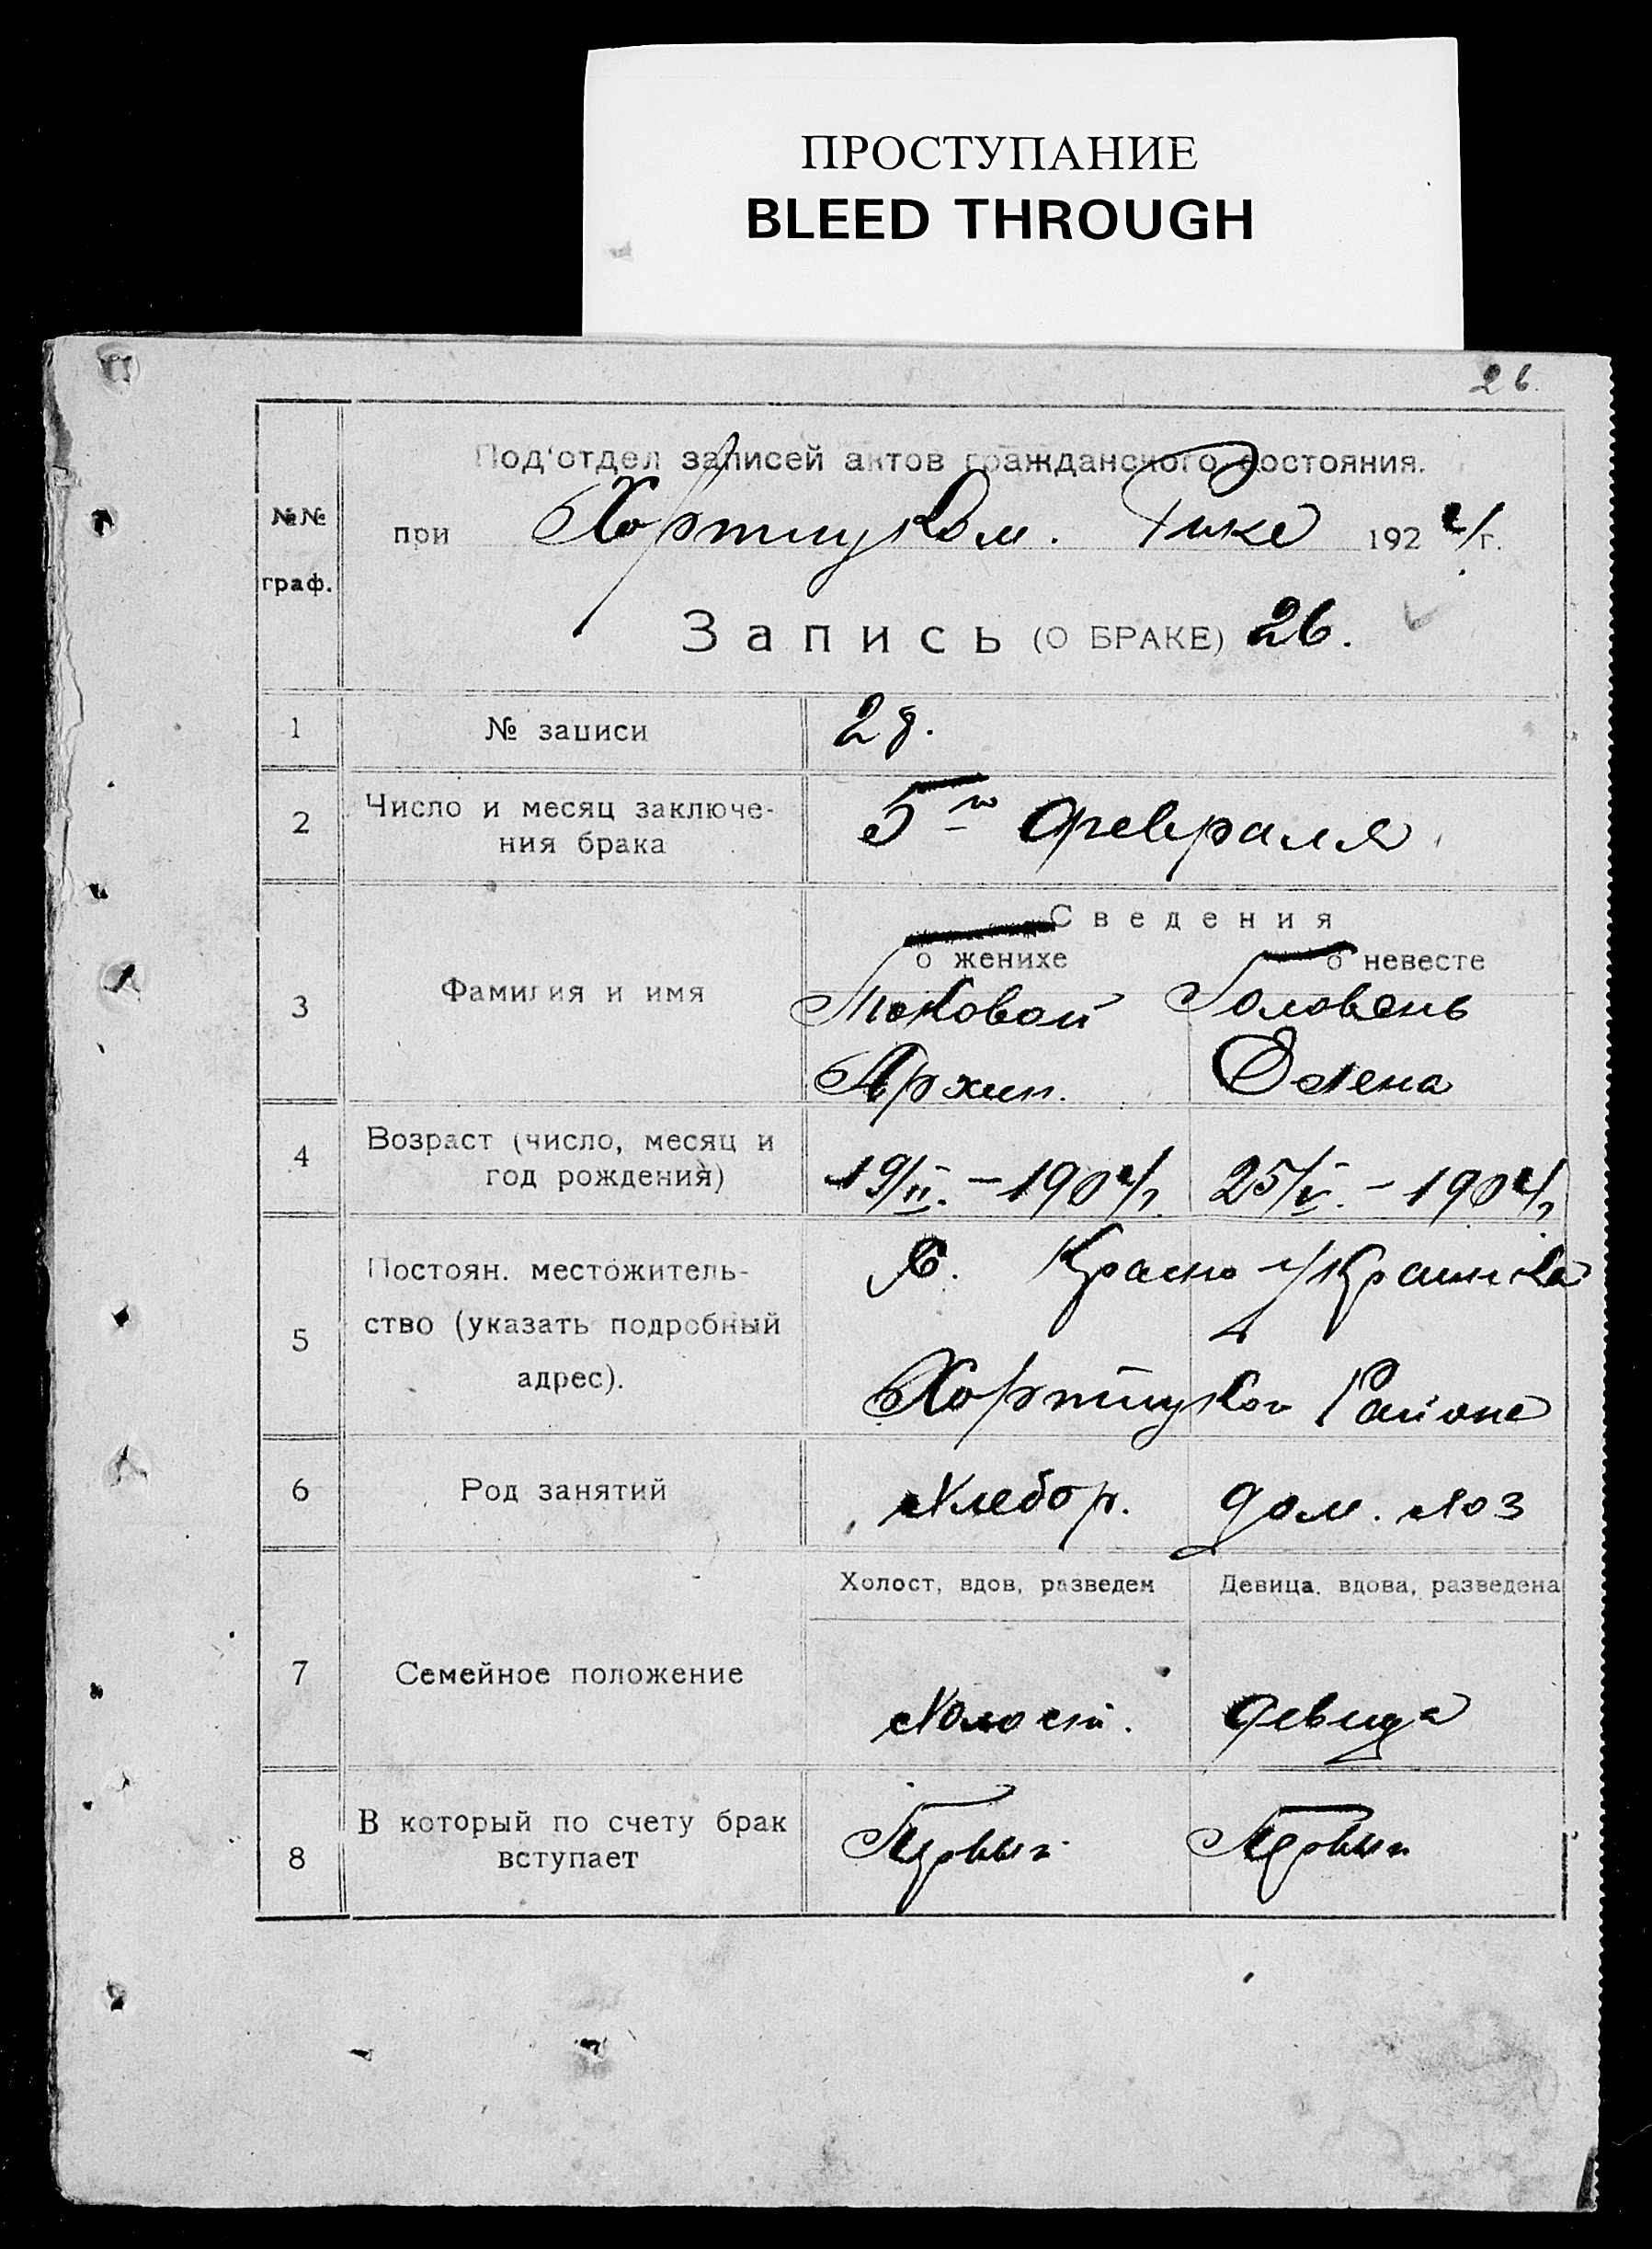 ПРОСТУПАНИЕ
BLEED THROUGH
26.
Под'отдел записей актов гражданского состояния.
№№ граф.
при Хортицком. Рике 1924 г.
Запись (О БРАКЕ) 26.
1 № записи 28.
2 Число и месяц заключе-
ния брака
5го Февраля
Сведения
о женихе о невесте
3 Фамилия и имя
Токовой Головень
Архип. Олена
4 Возраст (число, месяц и
год рождения)
19/II. - 1904 г. 25/V. - 1904 г.
5 Постоян. местожитель-
ство (указать подробный
адрес).
С. Красно Украинка
Хортицког Района
6 Род занятий
Хлебор. дом. хоз
Холост, вдов, разведен Девица, вдова, разведена
7 Семейное положение
Холост. девица
8 В который по счету брак
вступает
Первый Первый